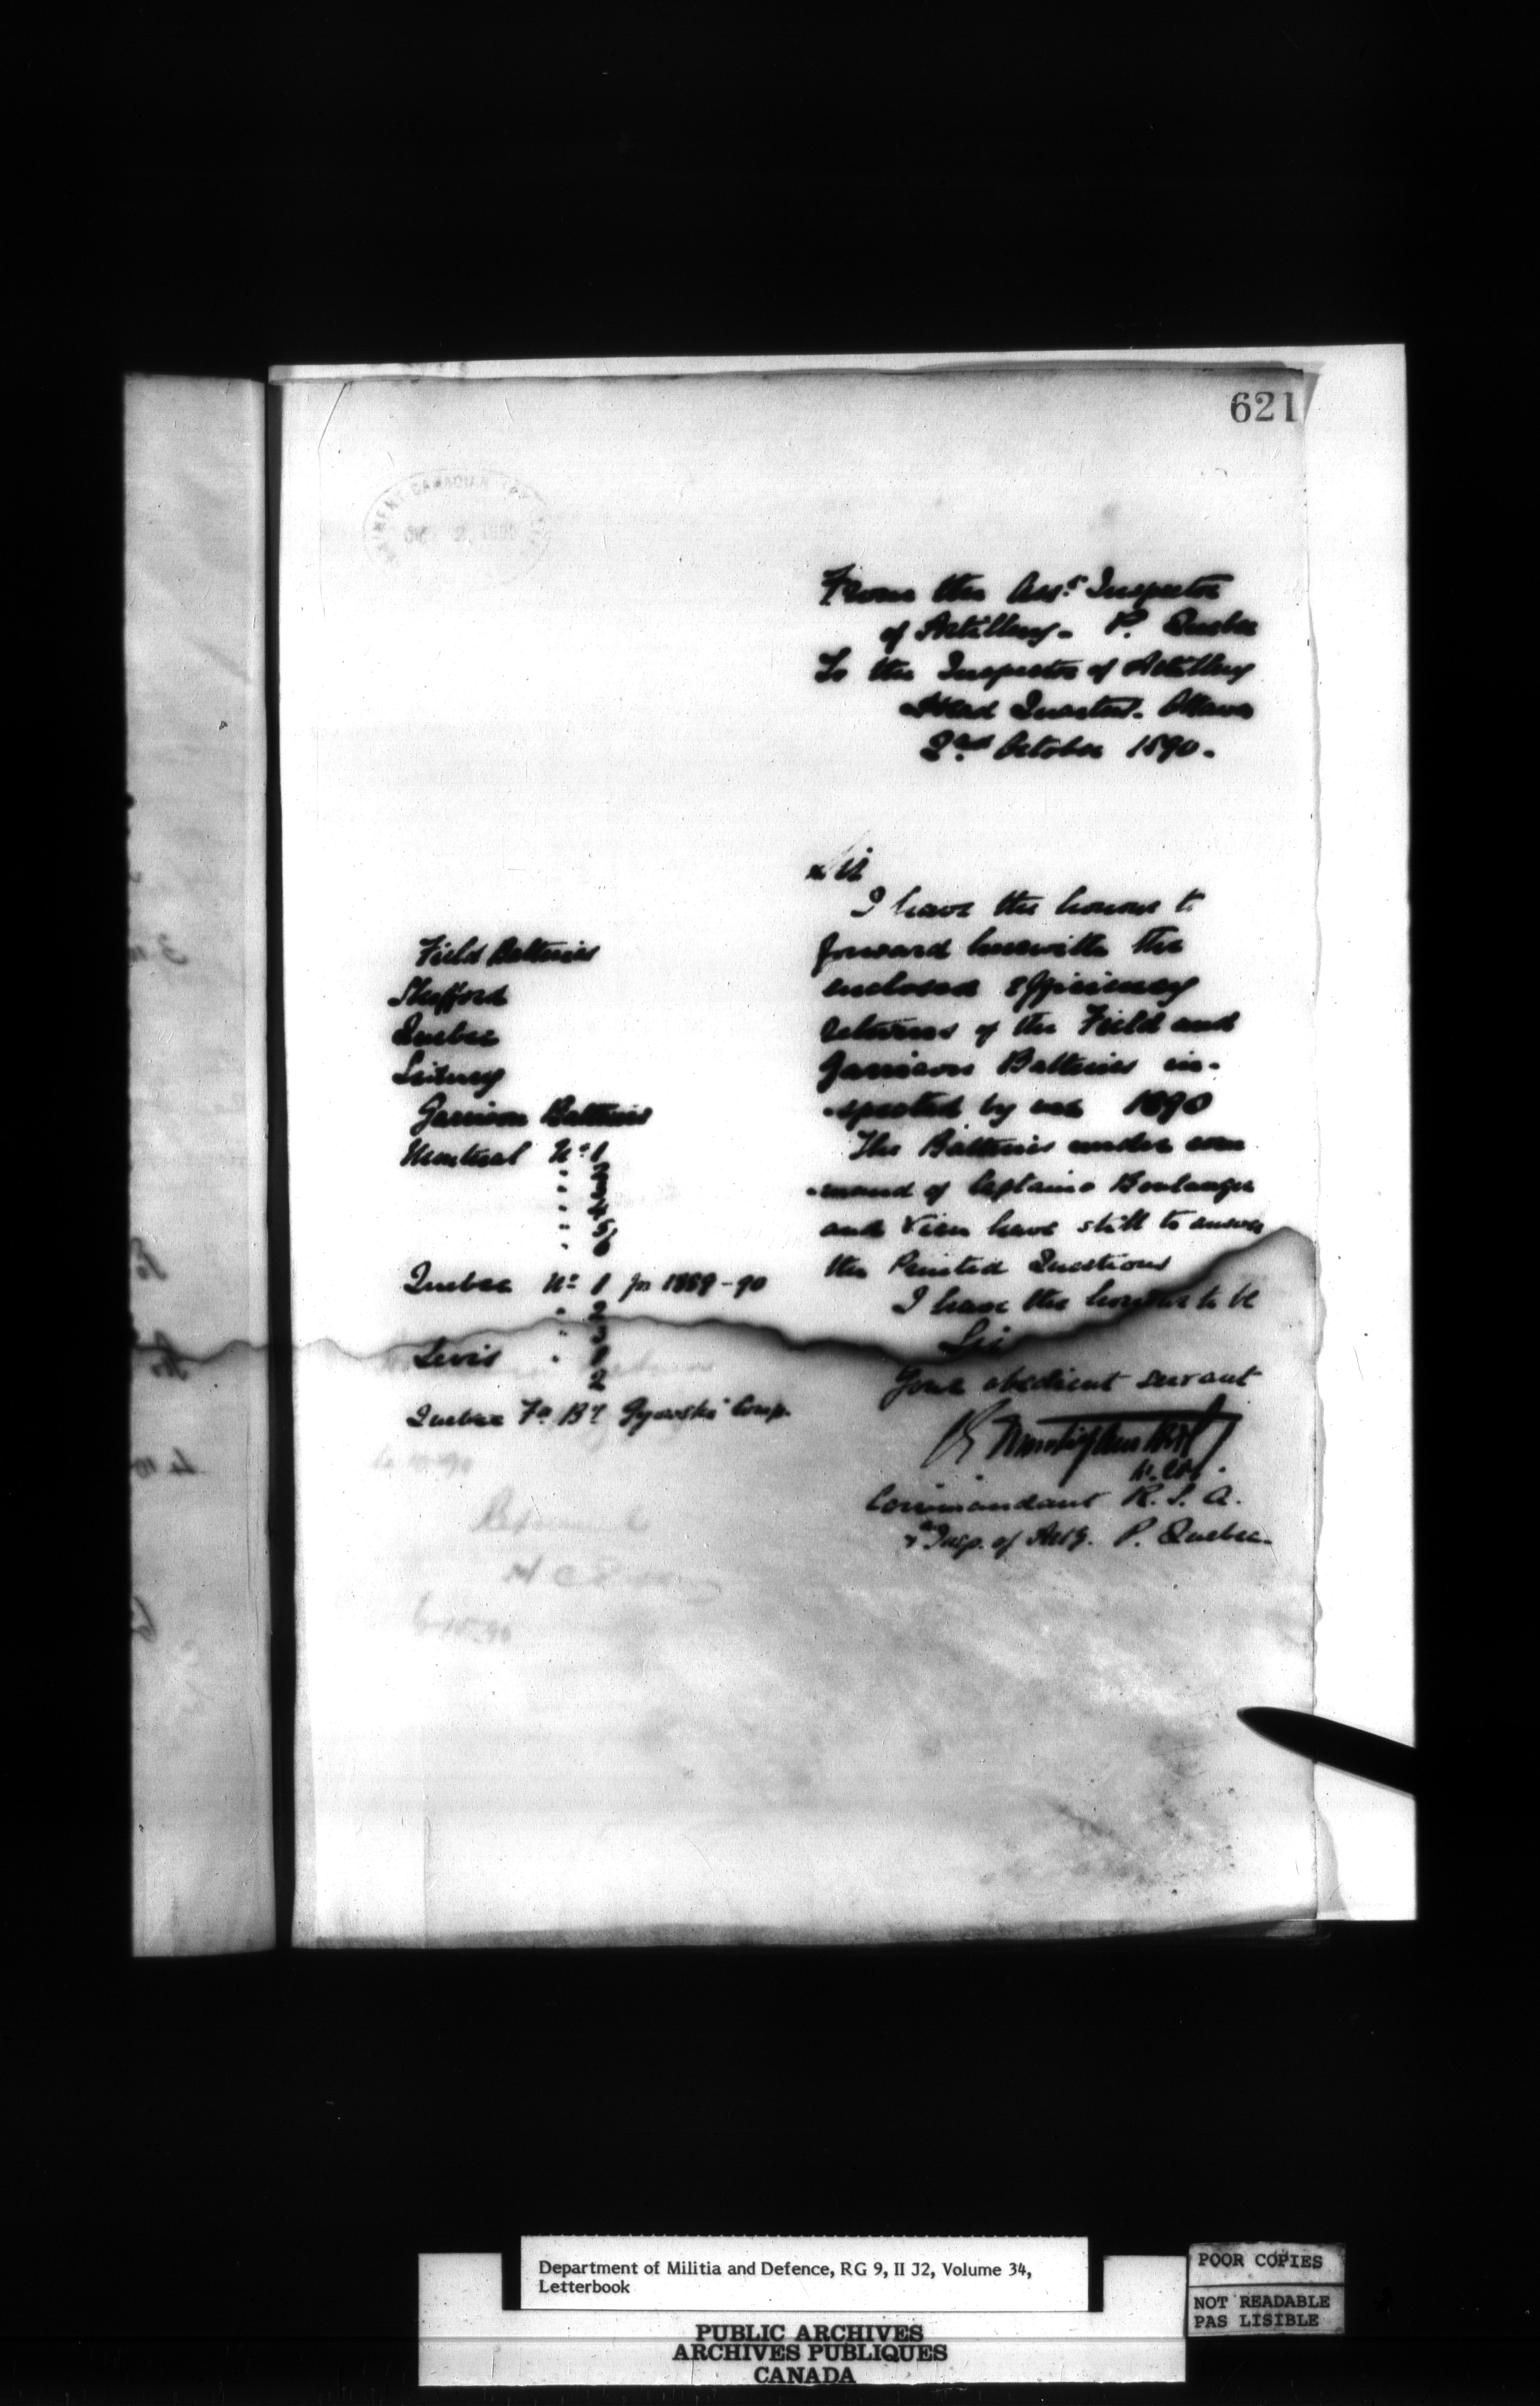 621
CANADIAN
From the Asst Inspector
of Artillery - P. Quebec
To the Inspector of Artillery
Head Quarters. Ottawa
2nd October 1890.
Sir
I have the honour to
forward herewith the
enclosed efficiency
returns of the Field and
Garrison Batteries in-
-spected by me 1890
The Batteries under com
-mand of Captains Boulanger
and Vien have still to answer
the Printed Questions
I have the honour to be
Sir
Your obedient servant
Lt. Col.
Commandant R. S. A.
& Insp. of Arty. P. Quebec.
Field Batteries
Shefford
Quebec
Garrison Batteries
Montreal No 1
" 2
" 3
" 4
" 5
" 6
Quebec No 1 for 1889-90
" 2
" 3
Levis " 1
2
Quebec Fd By Gzowski Comp.
6-10-90
Department of Militia and Defence, RG 9, II J2, Volume 34,
Letterbook
PUBLIC ARCHIVES
ARCHIVES PUBLIQUES
CANADA
POOR COPIES
NOT READABLE
PAS LISIBLE